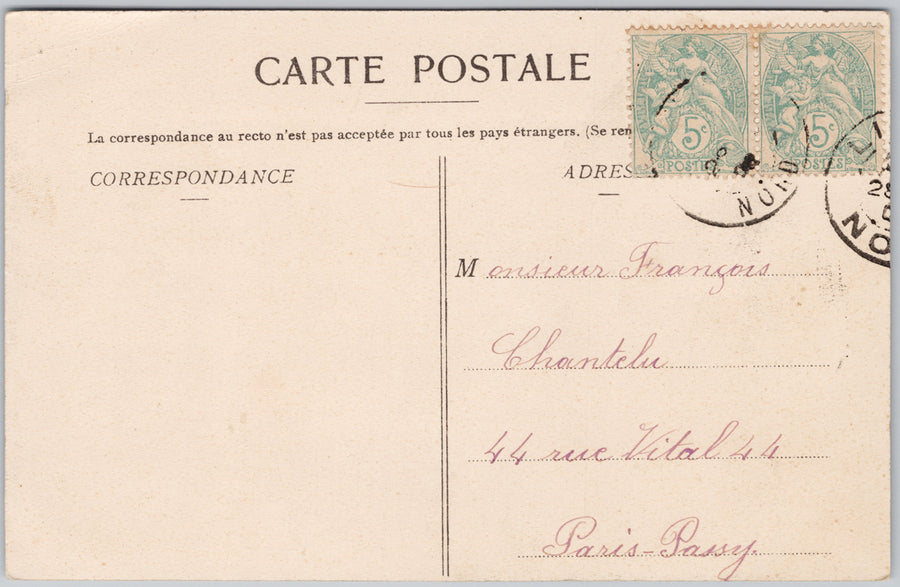 CARTE POSTALE
La correspondance au recto n'est pas acceptée par tous les pays étrangers. (Se ren
CORRESPONDANCE
ADRES
5c POSTES
5c POSTES
NORD
28
NO
Monsieur François
Chantelu
44 rue Vital 44
Paris-Passy.